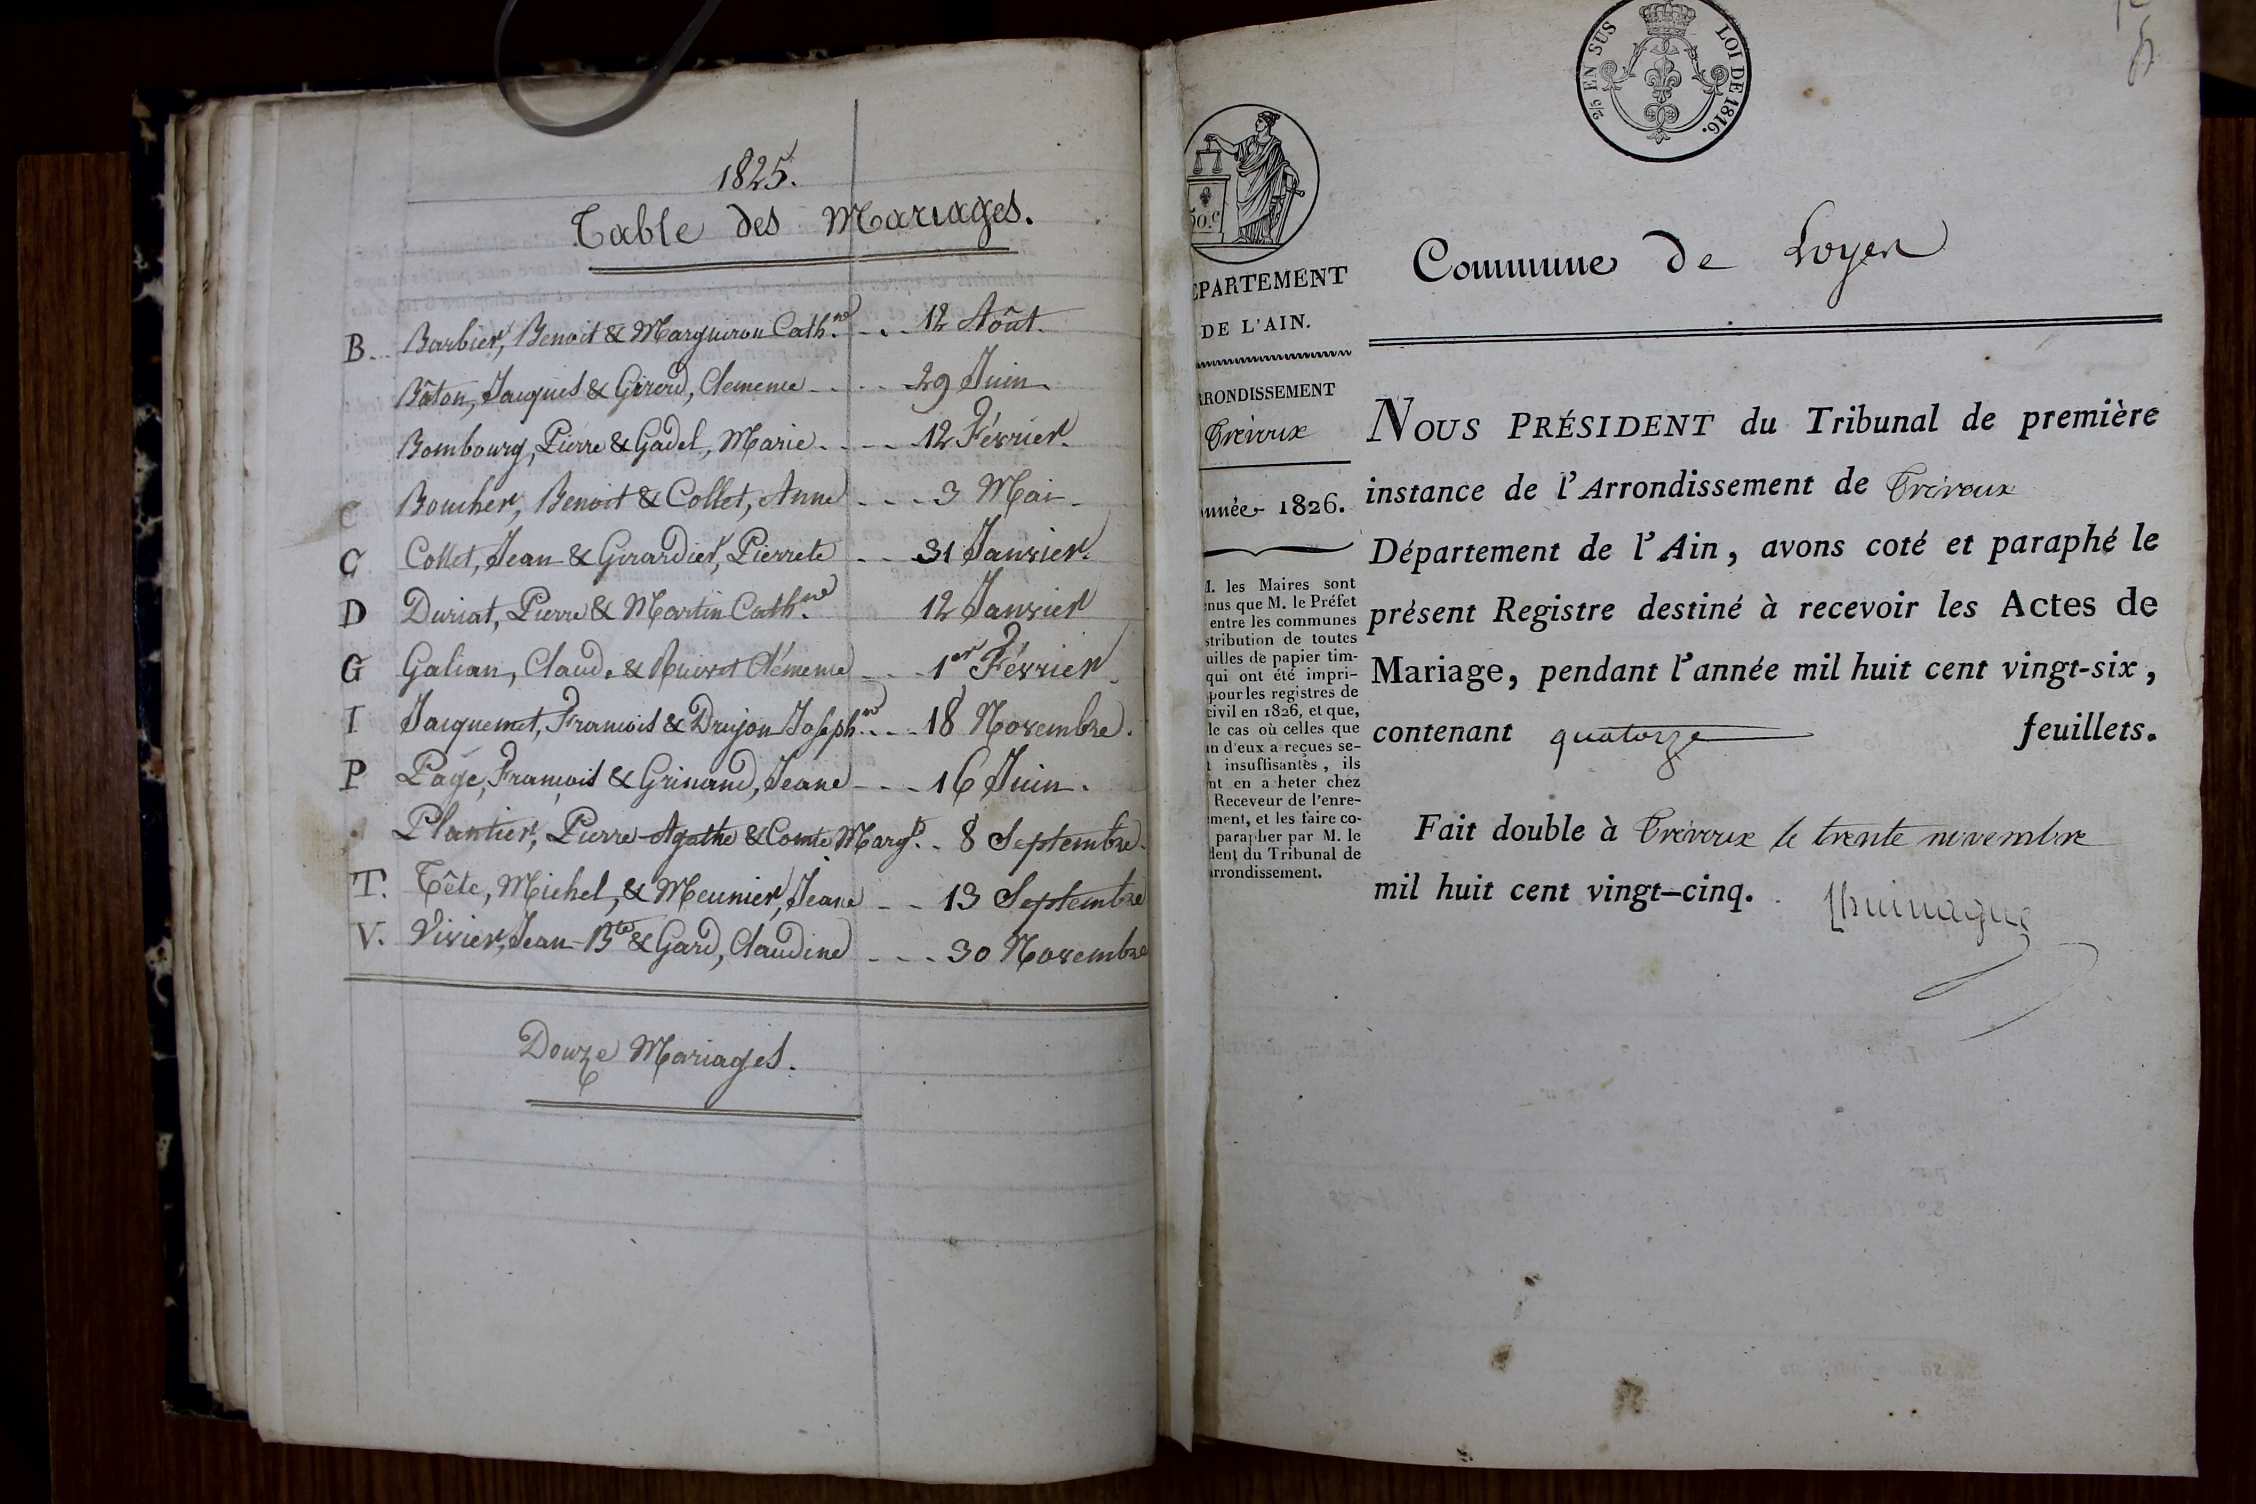 1825.
Table des Mariages.
B. Barbier, Benoit & Marguiron Cath.ne - - 12 Aôut.
Bâton, Jacques & Girerd, Clemence - - - 29 Juin.
Bombourg, Pierre & Gadel, Marie - - - 12 Février.
C Boucher, Benoit & Collet, Anne - - - 3 Mai -
C Collet, Jean & Girardier, Pierrete - - 31 Janvier.
D Duriat, Pierre & Martin Cath.ne 12 Janvier
G Galian, Claud. & Ruivet Clémence - - - 1er Février
I Jacquemet, François & Drujon Joseph.ne - - - 18 Novembre.
P Page, François & Grinand, Jeane - - - 16 Juin.
Plantier, Pierre Agathe & Comte Marg.te - 8 Septembre.
T. Tête, Michel, & Meunier, Jeane - - 13 Septembre
V. Vivier, Jean-Bte & Gard, Claudine - - - 30 Novembre
Douze Mariages.
2/5 EN SUS
LOI DE 1816.
50.c
EPARTEMENT
DE L'AIN.
RRONDISSEMENT
Trévoux
nnée 1826.
M. les Maires sont
nus que M. le Préfet
entre les communes
stribution de toutes
uilles de papier tim-
qui ont été impri-
pour les registres de
civil en 1826, et que,
le cas où celles que
un d'eux a reçues se-
t insuffisantes, ils
nt en a heter chez
Receveur de l'enre-
ment, et les faire co-
parapher par M. le
dent du Tribunal de
rrondissement.
Commune de Loyes
NOUS PRÉSIDENT du Tribunal de première
instance de l'Arrondissement de Trévoux
Département de l'Ain, avons coté et paraphé le
présent Registre destiné à recevoir les Actes de
Mariage, pendant l'année mil huit cent vingt-six,
contenant quatorze feuillets.
Fait double à Trévoux le trente novembre
mil huit cent vingt-cinq.